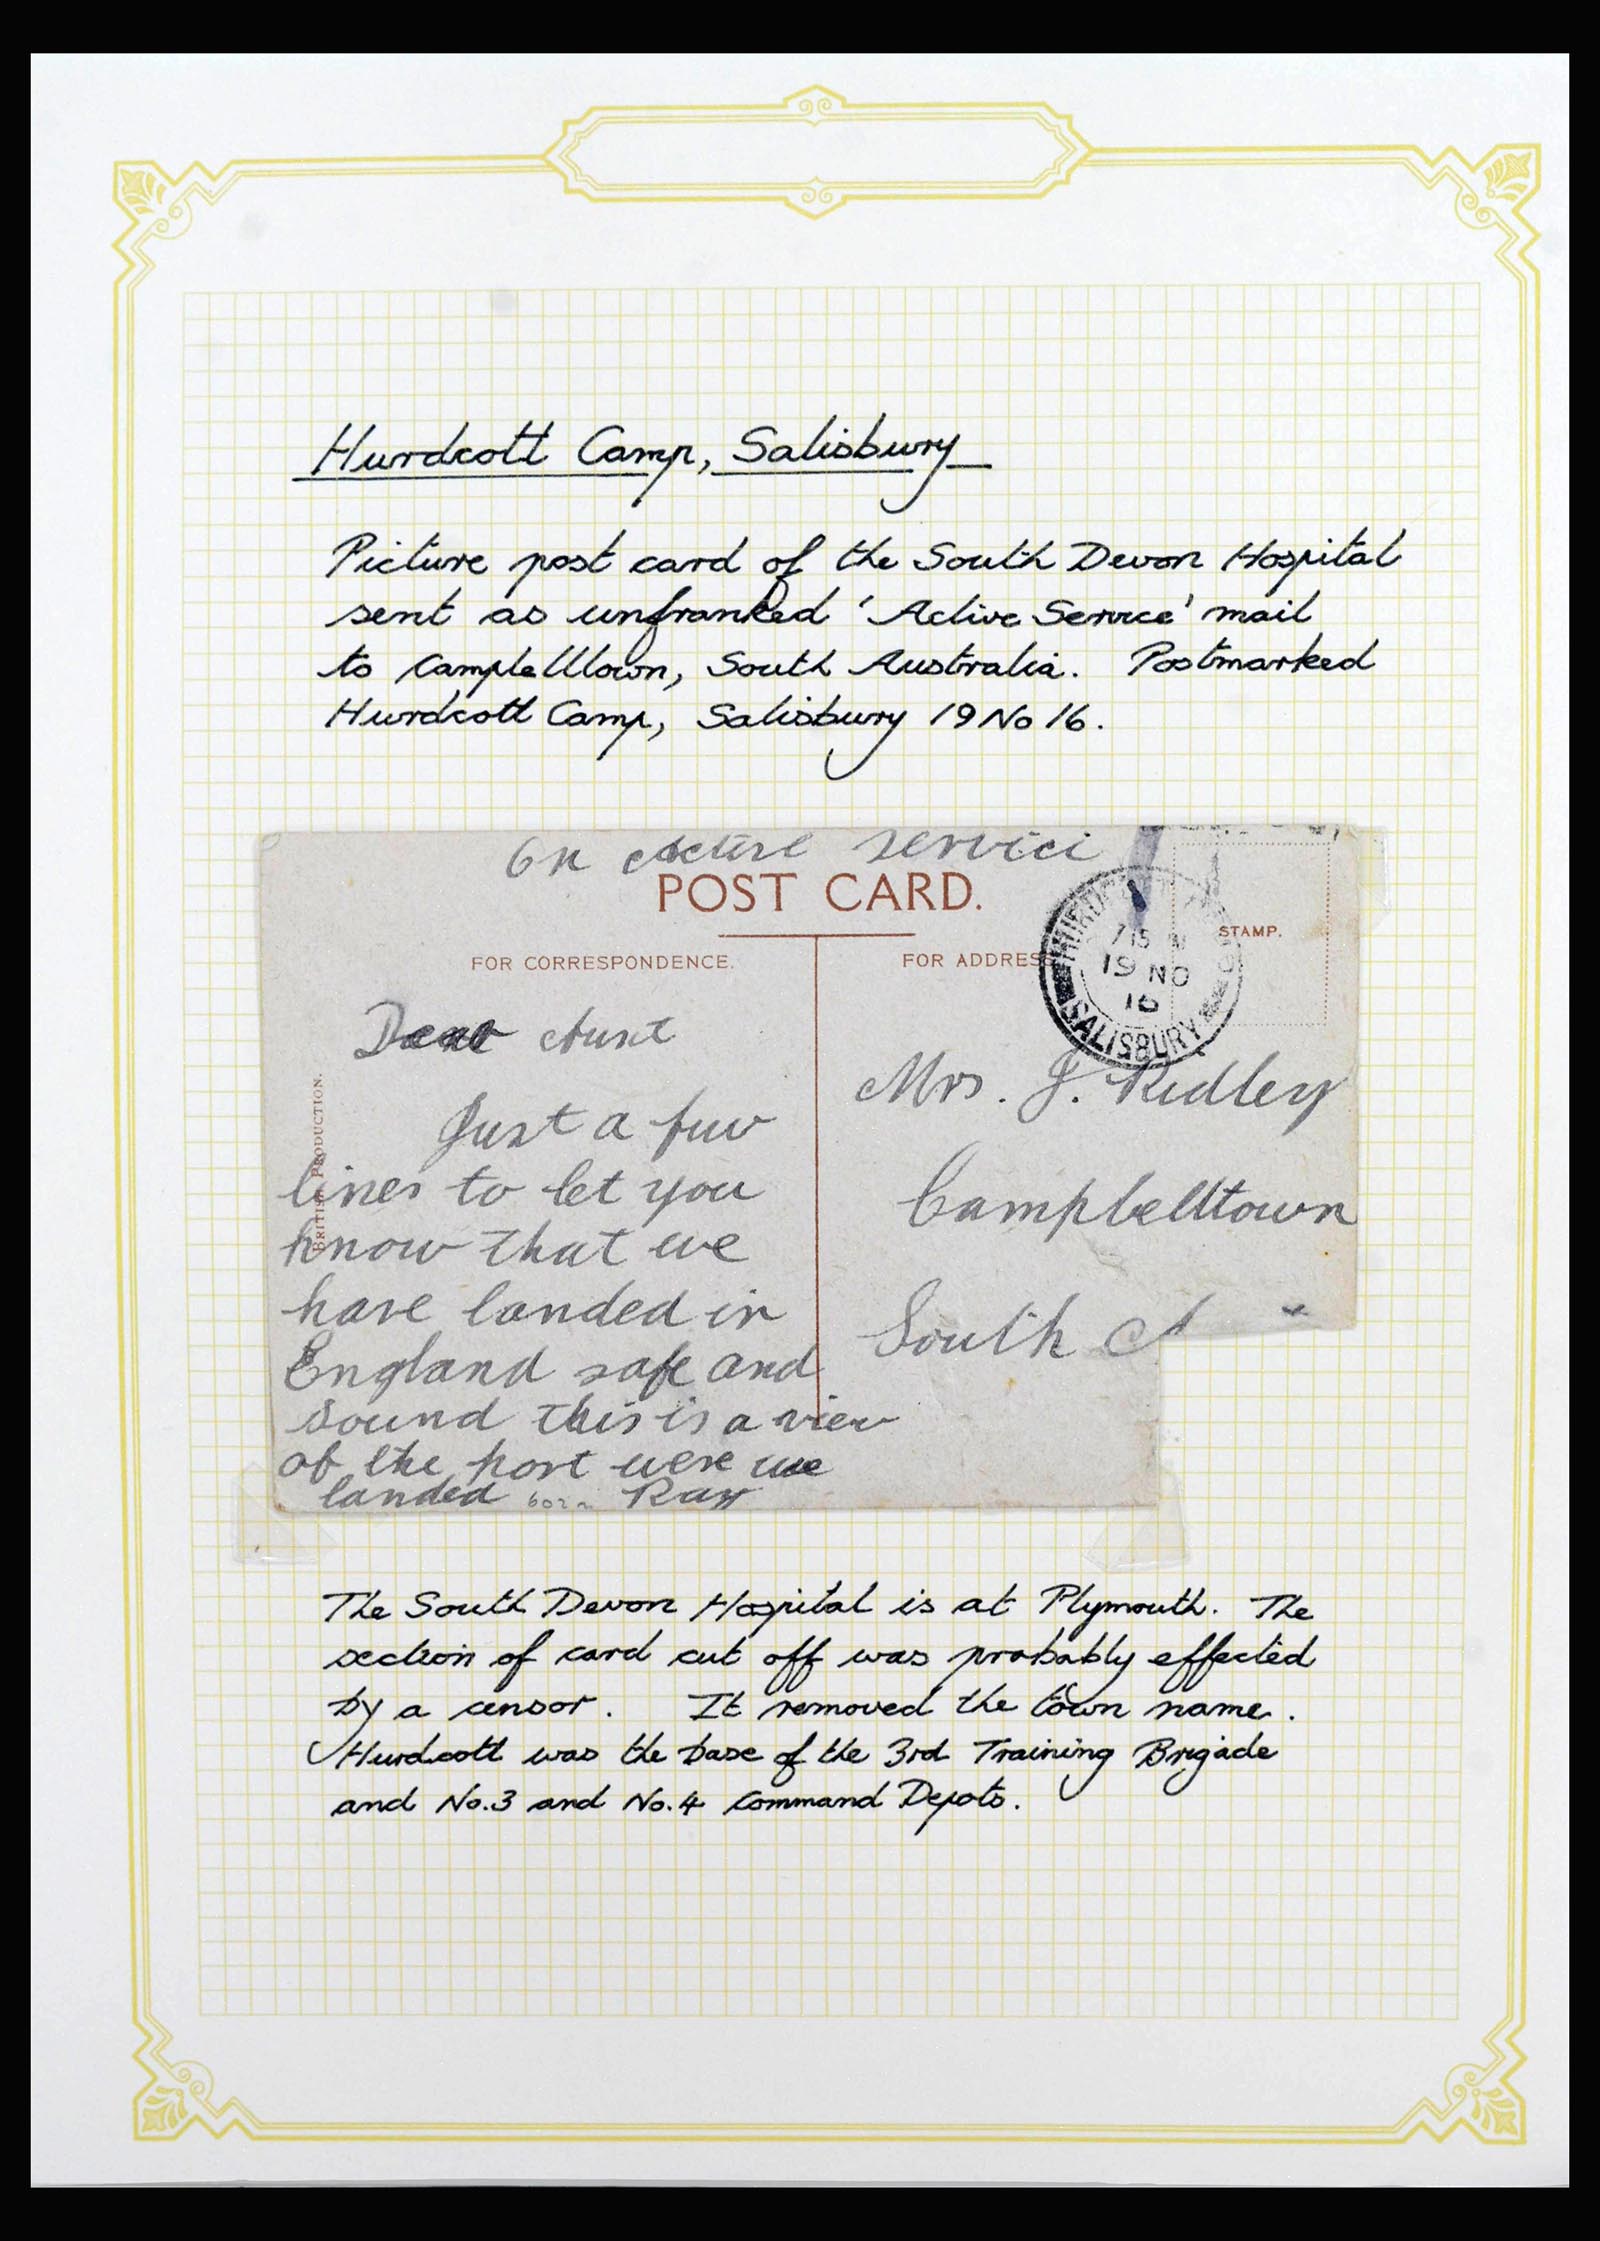 Hurdcott Camp, Salisbury
Picture post card of the South Devon Hospital
sent as unfranked 'Active Service' mail
to Campbelltown, South Australia. Postmarked
Hurdcott Camp, Salisbury 19 No 16.
On Active Servici
POST CARD.
FOR CORRESPONDENCE.
FOR ADDRESS
STAMP.
HURDCOTT
7 15
19 NO
16
SALISBURY
BRITISH PRODUCTION.
Dear Aunt
Just a few
lines to let you
know that we
have landed in
England safe and
sound this is a view
of the port were we
landed Ray
Mrs. J. Ridley
Campbelltown
South A
The South Devon Hospital is at Plymouth. The
section of card cut off was probably effected
by a censor. It removed the town name.
Hurdcott was the base of the 3rd Training Brigade
and No.3 and No.4 Command Depots.